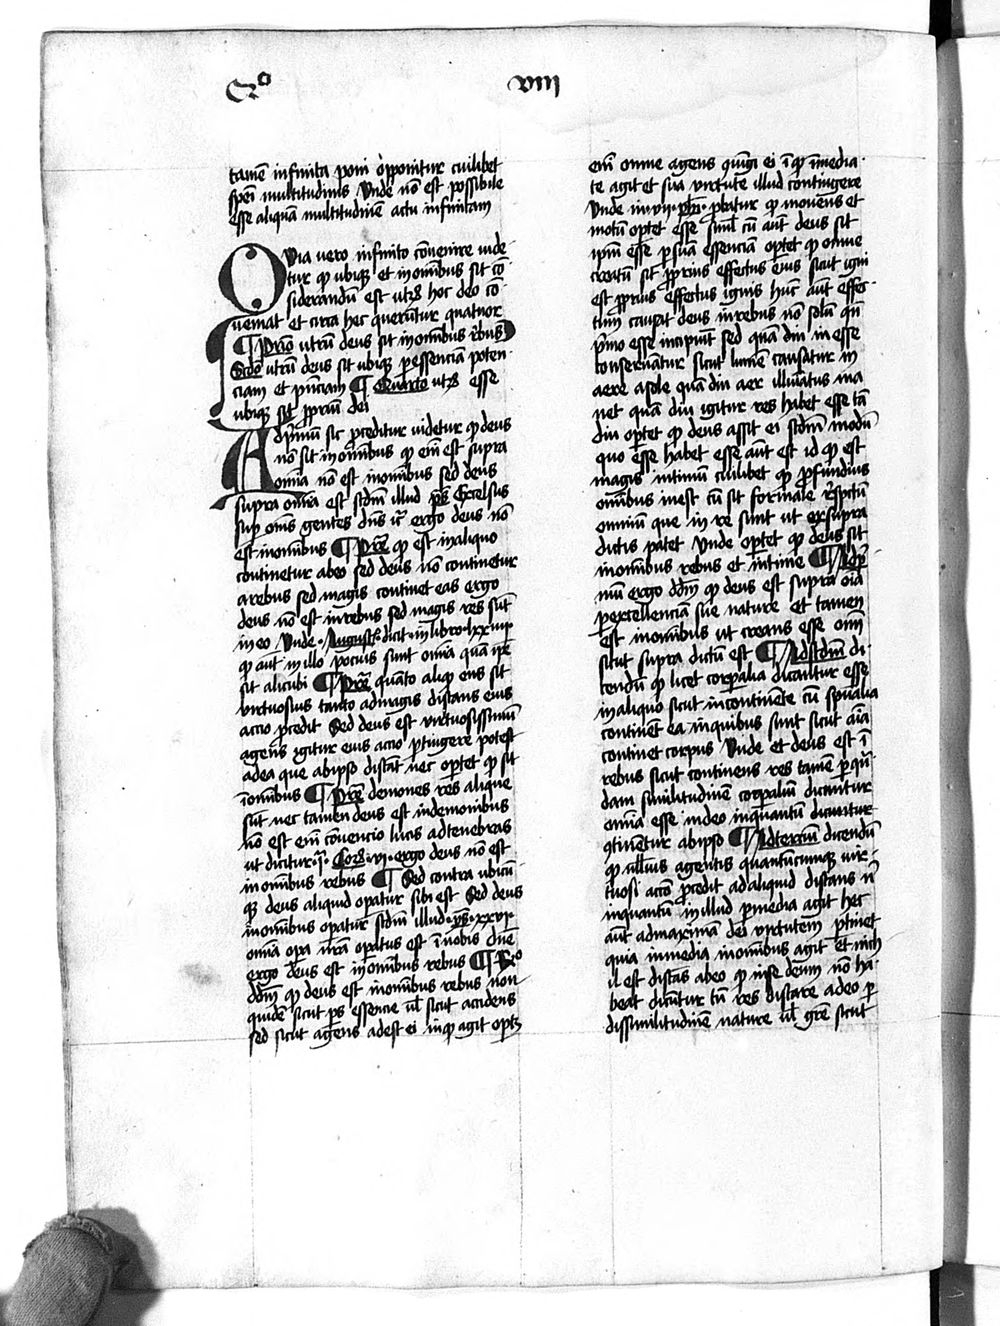 Qo
viii
tamē infinita poni opponitur cuilibet
speī multitudinis Vnde nō est possibile
esse aliquā multitudinē actu infinitam
QVia vero infinito cōvenire vide
tur qd ubiqꝫ et in omībus sit cō
siderandū est utrꝫ hoc deo cō
veniat et circa hec querūtur quatuor
¶ Primo utrū deus sit in omībus rebus
Scdo utrū deus sit ubiqꝫ per essenciā poten
ciam et pn̄ciam ¶ Quarto utrꝫ esse
ubiqꝫ sit ppriū dei
Ad primū sic proceditur videtur qd deus
nō sit in omībus qd em̄ est supra
omīa nō est in omībus sed deus
supra omīa est scdm illud ps̄ Excelsus
sup om̄s gentes dn̄s ꝛc̄ ergo deus nō
est in omībus ¶ Pre qd est in aliquo
continetur ab eo sed deus nō continetur
a rebus sed magis continet eas ergo
deus nō est in rebus sed magis res sūt
in eo Vnde Augusti dicit in libro lxxxiii
qd aūt in illo pocius sunt omīa quā ipe
sit alicubi ¶ Pre quāto aliqd ens sit
virtuosius tanto ad magis distans eius
actio pcedit Sed deus est virtuosissimū
agens igitur eius actio ptingere potest
ad ea que ab ipso distāt nec oportet qd sit
ī omībus ¶ Pre demones res alique
sūt nec tamen deus est in demonibus
nō est em̄ cōvencio lucis ad tenebras
ut dicitur ii Corꝫ vi ergo deus nō est
in omībus rebus ¶ Sed contra ubicū
qꝫ deus aliquid opatur sibi est Sed deus
in omībus opatur scdm illud ys xxvi
omīa opa nr̄a opatus es ī nobis dn̄e
ergo deus est in omībus rebus ¶ Ro
ddm̄ qd deus est in omībus rebus non
quidē sicut ps essencie ul̄ sicut accidens
sed sicut agens adest ei in qd agit optꝫ
em̄ omne agens qūgi ei ī qd īmedia
te agit et sua virtute illud contingere
Vnde in vii phi pbatur qd movens et
motū optet esse simul cū aūt deus sit
ipm̄ esse p suā essenciā optet qd omne
creatū sit pprius effectus eius sicut igni
est pprius effectus ignis hūc aūt effec
tum causat deus in rebus nō solū qn̄
pmo esse incipiūt sed quā diu in esse
conservātur sicut lumē causatur in
aere a sole quā diu aer illuīatus ma
net quā diu igitur res habet esse tā
diu optet qd deus assit ei scdm modū
quo esse habet esse aūt est id qd est
magis intimū cuilibet qd pfundius
omībus inest cū sit formale respectu
omniū que in re sunt ut ex supra
dictis patet Vnde optet qd deus sit
in omībus rebus et intime ¶ Ad p
mū ergo ddm̄ qd deus est supra oīa
p excellenciā sue nature et tamen
est in omībus ut creans esse oīm
sicut supra dictū est ¶ Ad scdm di
cendū qd licet corpalia dicantur esse
in aliquo sicut in continente tn̄ spualia
continēt ea in quibus sunt sicut aīa
continet corpus Vnde et deus est ī
rebus sicut continens res tamē p quā
dam similitudinē corpaliū dicuntur
omīa esse in deo inquantū dicuntur
qtinentur ab ipso ¶ Ad terciū dicendū
qd nullius agentis quantūcumqꝫ vir
tuosi actio pcedit ad aliquid distans n̄
inquantū in illud p media agit hec
aūt ad maximā dei virtutem ptinet
quia immedia in omībus agit et nich
il est distās ab eo qd in se deum nō ha
beat dicūtur tn̄ res distare a deo p
dissimilitudinē nature ul̄ gr̄e sicut